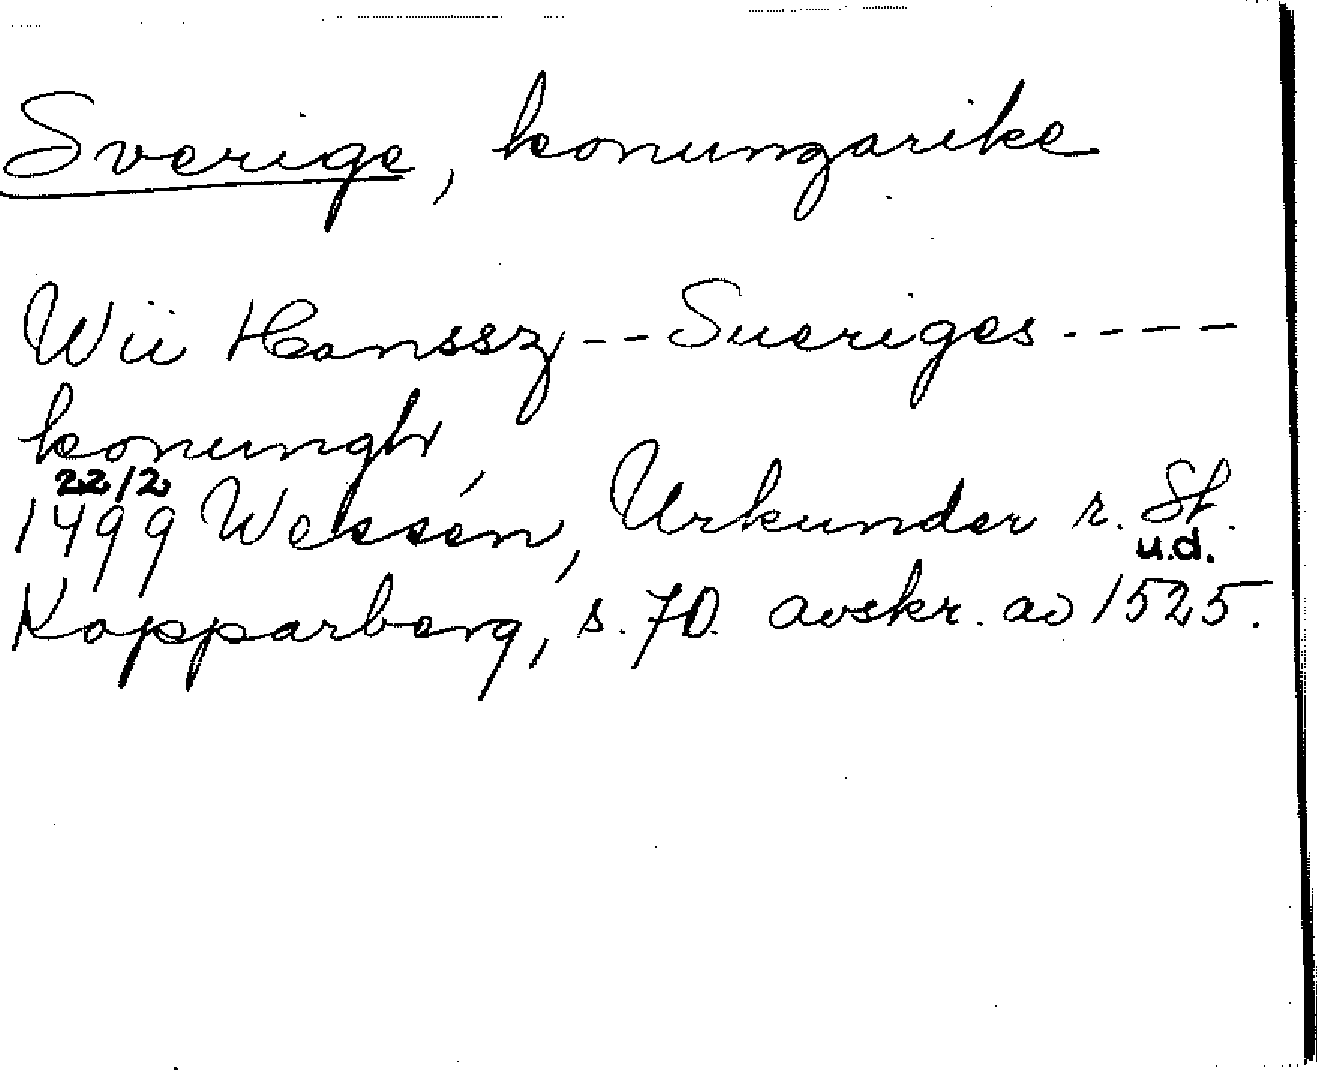 Sverige, konungarike
Wii Hanssz -- Sueriges ----
konungh
22/2
1499 Wessén, Urkunder r. St.
u.d.
Kopparberg, s. 70. avskr. av 1525.